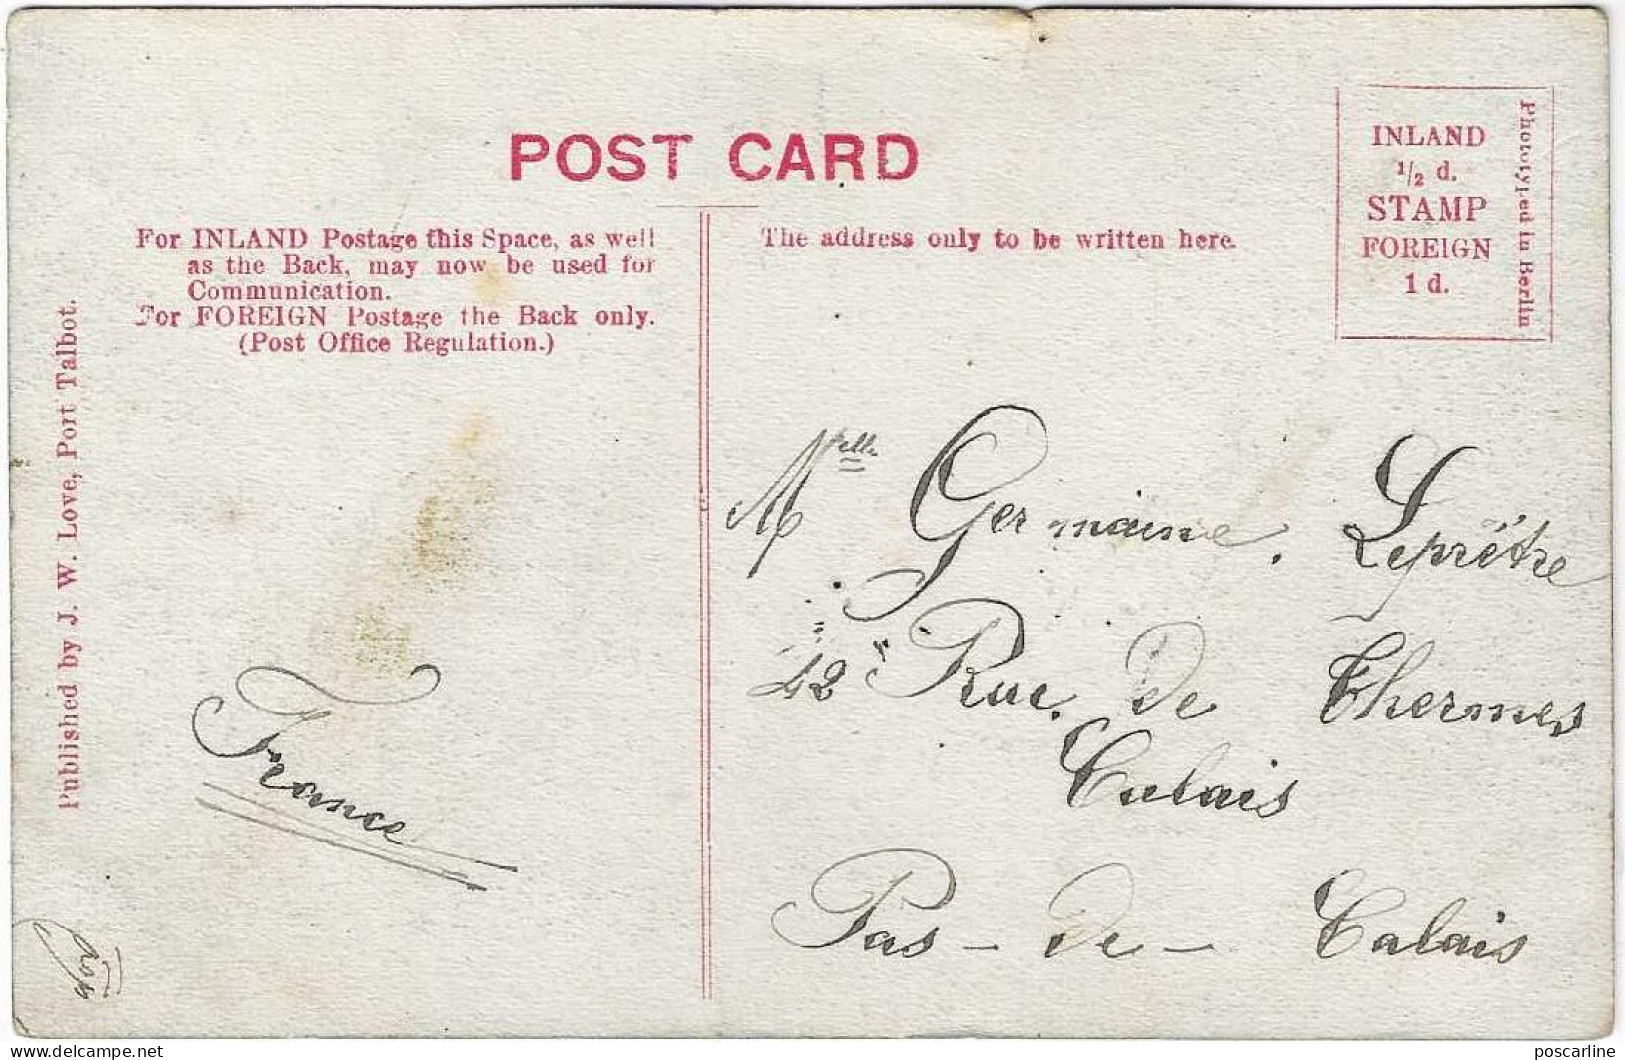 POST CARD
For INLAND Postage this Space, as well
as the Back, may now be used for
Communication.
For FOREIGN Postage the Back only.
(Post Office Regulation.)
The address only to be written here.
INLAND
1/2 d.
STAMP
FOREIGN
1 d.
Phototyped in Berlin
Published by J. W. Love, Port Talbot.
Melle Germaine. Leprêtre
42 Rue. De Thermes
Calais
Pas-De-Calais
France
poscarline